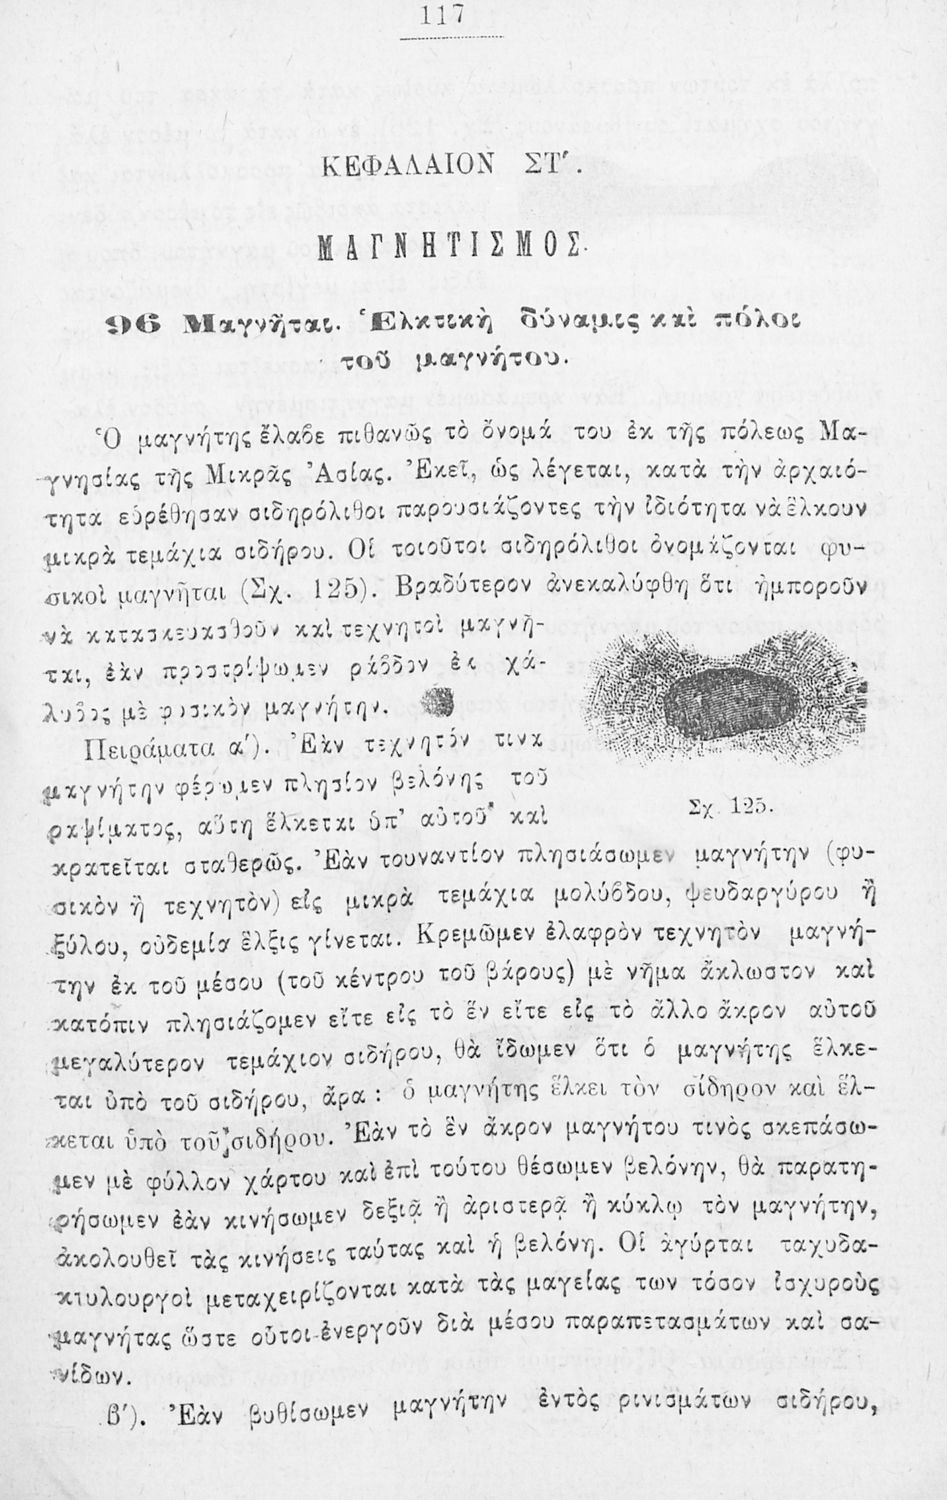 117
ΚΕΦΑΛΑΙΟΝ ΣΤ'.
ΜΑΓΝΗΤΙΣΜΟΣ.
96 Μαγνῆται. Ἑλκτικὴ δύναμις καὶ πόλοι
τοῦ μαγνήτου.
Ὁ μαγνήτης ἔλαβε πιθανῶς τὸ ὄνομά του ἐκ τῆς πόλεως Μα-
γνησίας τῆς Μικρᾶς Ἀσίας. Ἐκεῖ, ὡς λέγεται, κατὰ τὴν ἀρχαιό-
τητα εὑρέθησαν σιδηρόλιθοι παρουσιάζοντες τὴν ἰδιότητα νὰ ἕλκουν
μικρὰ τεμάχια σιδήρου. Οἱ τοιοῦτοι σιδηρόλιθοι ὀνομάζονται φυ-
σικοὶ μαγνῆται (Σχ. 125). Βραδύτερον ἀνεκαλύφθη ὅτι ἠμποροῦν
νὰ κατασκευασθοῦν καὶ τεχνητοὶ μαγνῆ-
ται, ἐὰν προστρίψωμεν ράβδον ἐκ χά-
λυβος μὲ φυσικὸν μαγνήτην.
Πειράματα α'). Ἐὰν τεχνητόν τινα
μαγνήτην φέρωμεν πλησίον βελόνης τοῦ
ραψίματος, αὕτη ἕλκεται ὑπ' αὐτοῦ καὶ
κρατεῖται σταθερῶς. Ἐὰν τουναντίον πλησιάσωμεν μαγνήτην (φυ-
σικὸν ἢ τεχνητὸν) εἰς μικρὰ τεμάχια μολύβδου, ψευδαργύρου ἢ
ξύλου, οὐδεμία ἕλξις γίνεται. Κρεμῶμεν ἐλαφρὸν τεχνητὸν μαγνή-
την ἐκ τοῦ μέσου (τοῦ κέντρου τοῦ βάρους) μὲ νῆμα ἄκλωστον καὶ
κατόπιν πλησιάζομεν εἴτε εἰς τὸ ἓν εἴτε εἰς τὸ ἄλλο ἄκρον αὐτοῦ
μεγαλύτερον τεμάχιον σιδήρου, θὰ ἴδωμεν ὅτι ὁ μαγνήτης ἕλκε-
ται ὑπὸ τοῦ σιδήρου, ἄρα : ὁ μαγνήτης ἕλκει τὸν σίδηρον καὶ ἕλ-
κεται ὑπὸ τοῦ σιδήρου. Ἐὰν τὸ ἓν ἄκρον μαγνήτου τινὸς σκεπάσω-
μεν μὲ φύλλον χάρτου καὶ ἐπὶ τούτου θέσωμεν βελόνην, θὰ παρατη-
ρήσωμεν ἐὰν κινήσωμεν δεξιᾷ ἢ ἀριστερᾷ ἢ κύκλῳ τὸν μαγνήτην,
ἀκολουθεῖ τὰς κινήσεις ταύτας καὶ ἡ βελόνη. Οἱ ἀγύρται ταχυδα-
κτυλουργοὶ μεταχειρίζονται κατὰ τὰς μαγείας των τόσον ἰσχυροὺς
μαγνήτας ὥστε οὗτοι ἐνεργοῦν διὰ μέσου παραπετασμάτων καὶ σα-
νίδων.
β'). Ἐὰν βυθίσωμεν μαγνήτην ἐντὸς ρινισμάτων σιδήρου,
Σχ. 125.